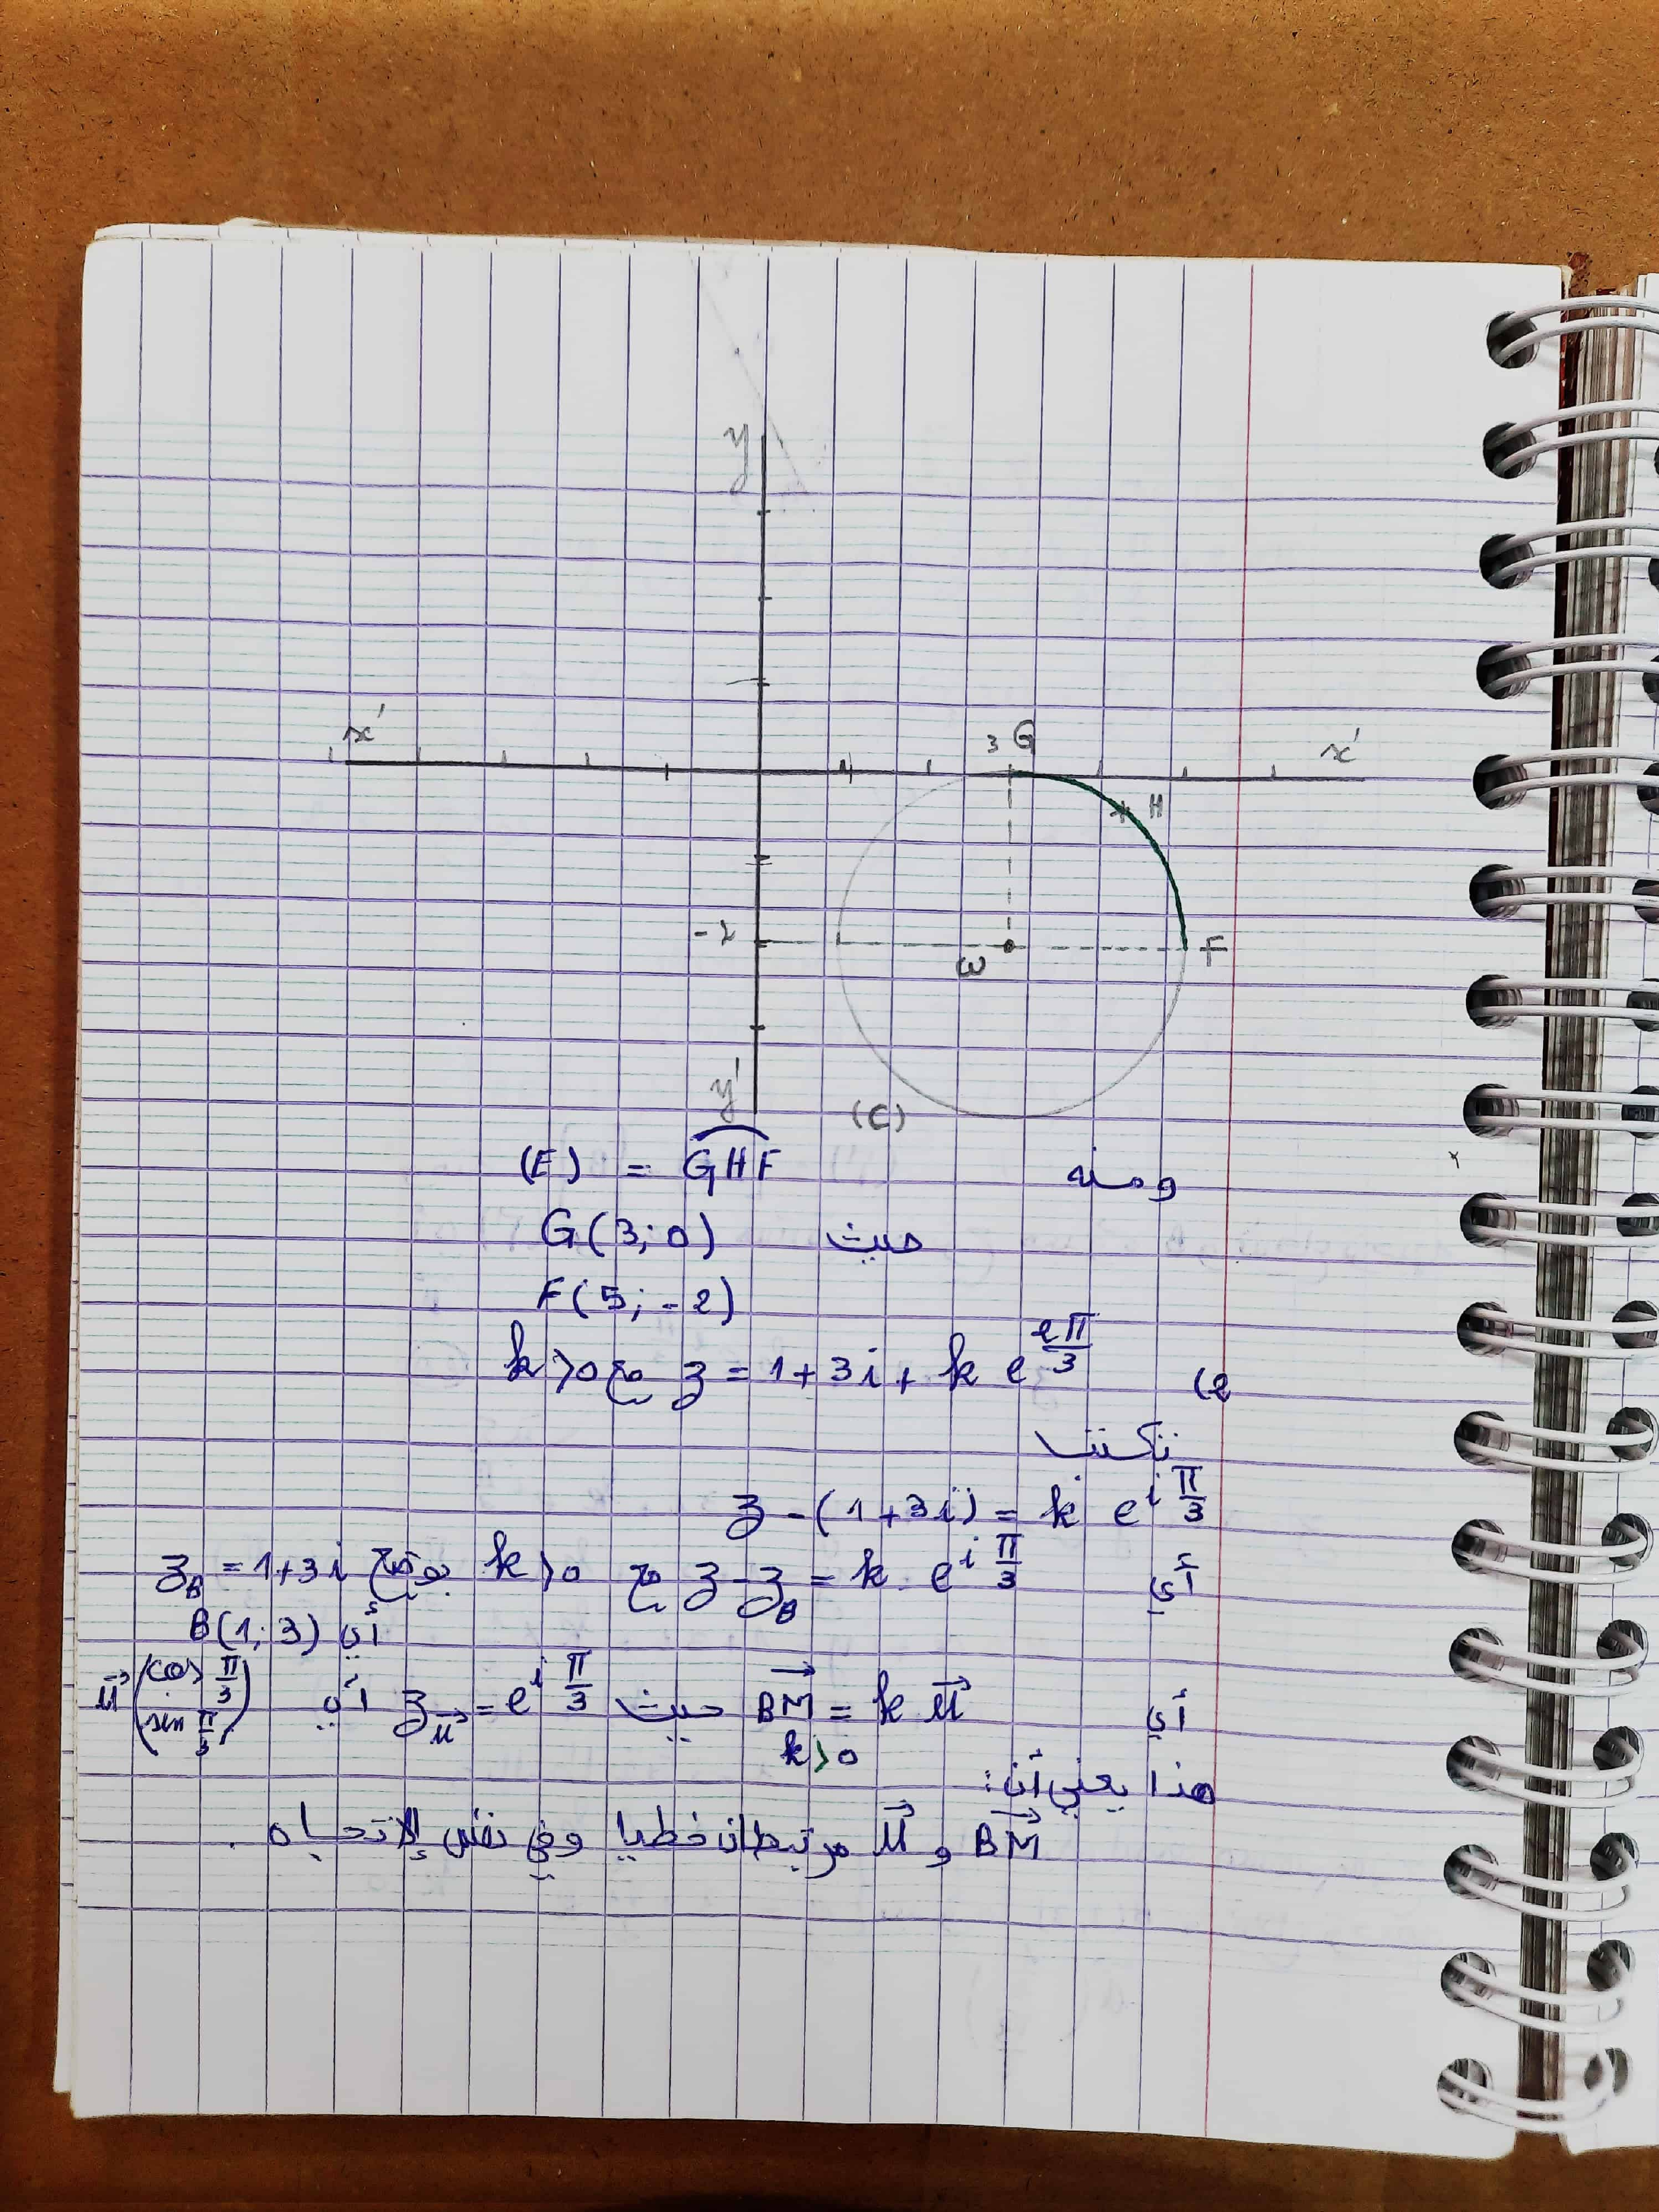 y
x' 3 G x'
H
-2 ω F
y' (C)
ومنه (E) = GHF
حيث G(3;0)
F(5;-2)
2) z = 1+3i + k e^{iπ/3} مع k>0
تكتب
z-(1+3i) = k e^{iπ/3}
أي z-z_B = k. e^{iπ/3} مع k>0 بوضع z_B = 1+3i
أي B(1;3)
أي BM = k u حيث z_u = e^{iπ/3} أي u(cos π/3 sin π/3)
k>0
هذا يعني أن:
BM و u مرتبطان خطيا وفي نفس الإتجاه .